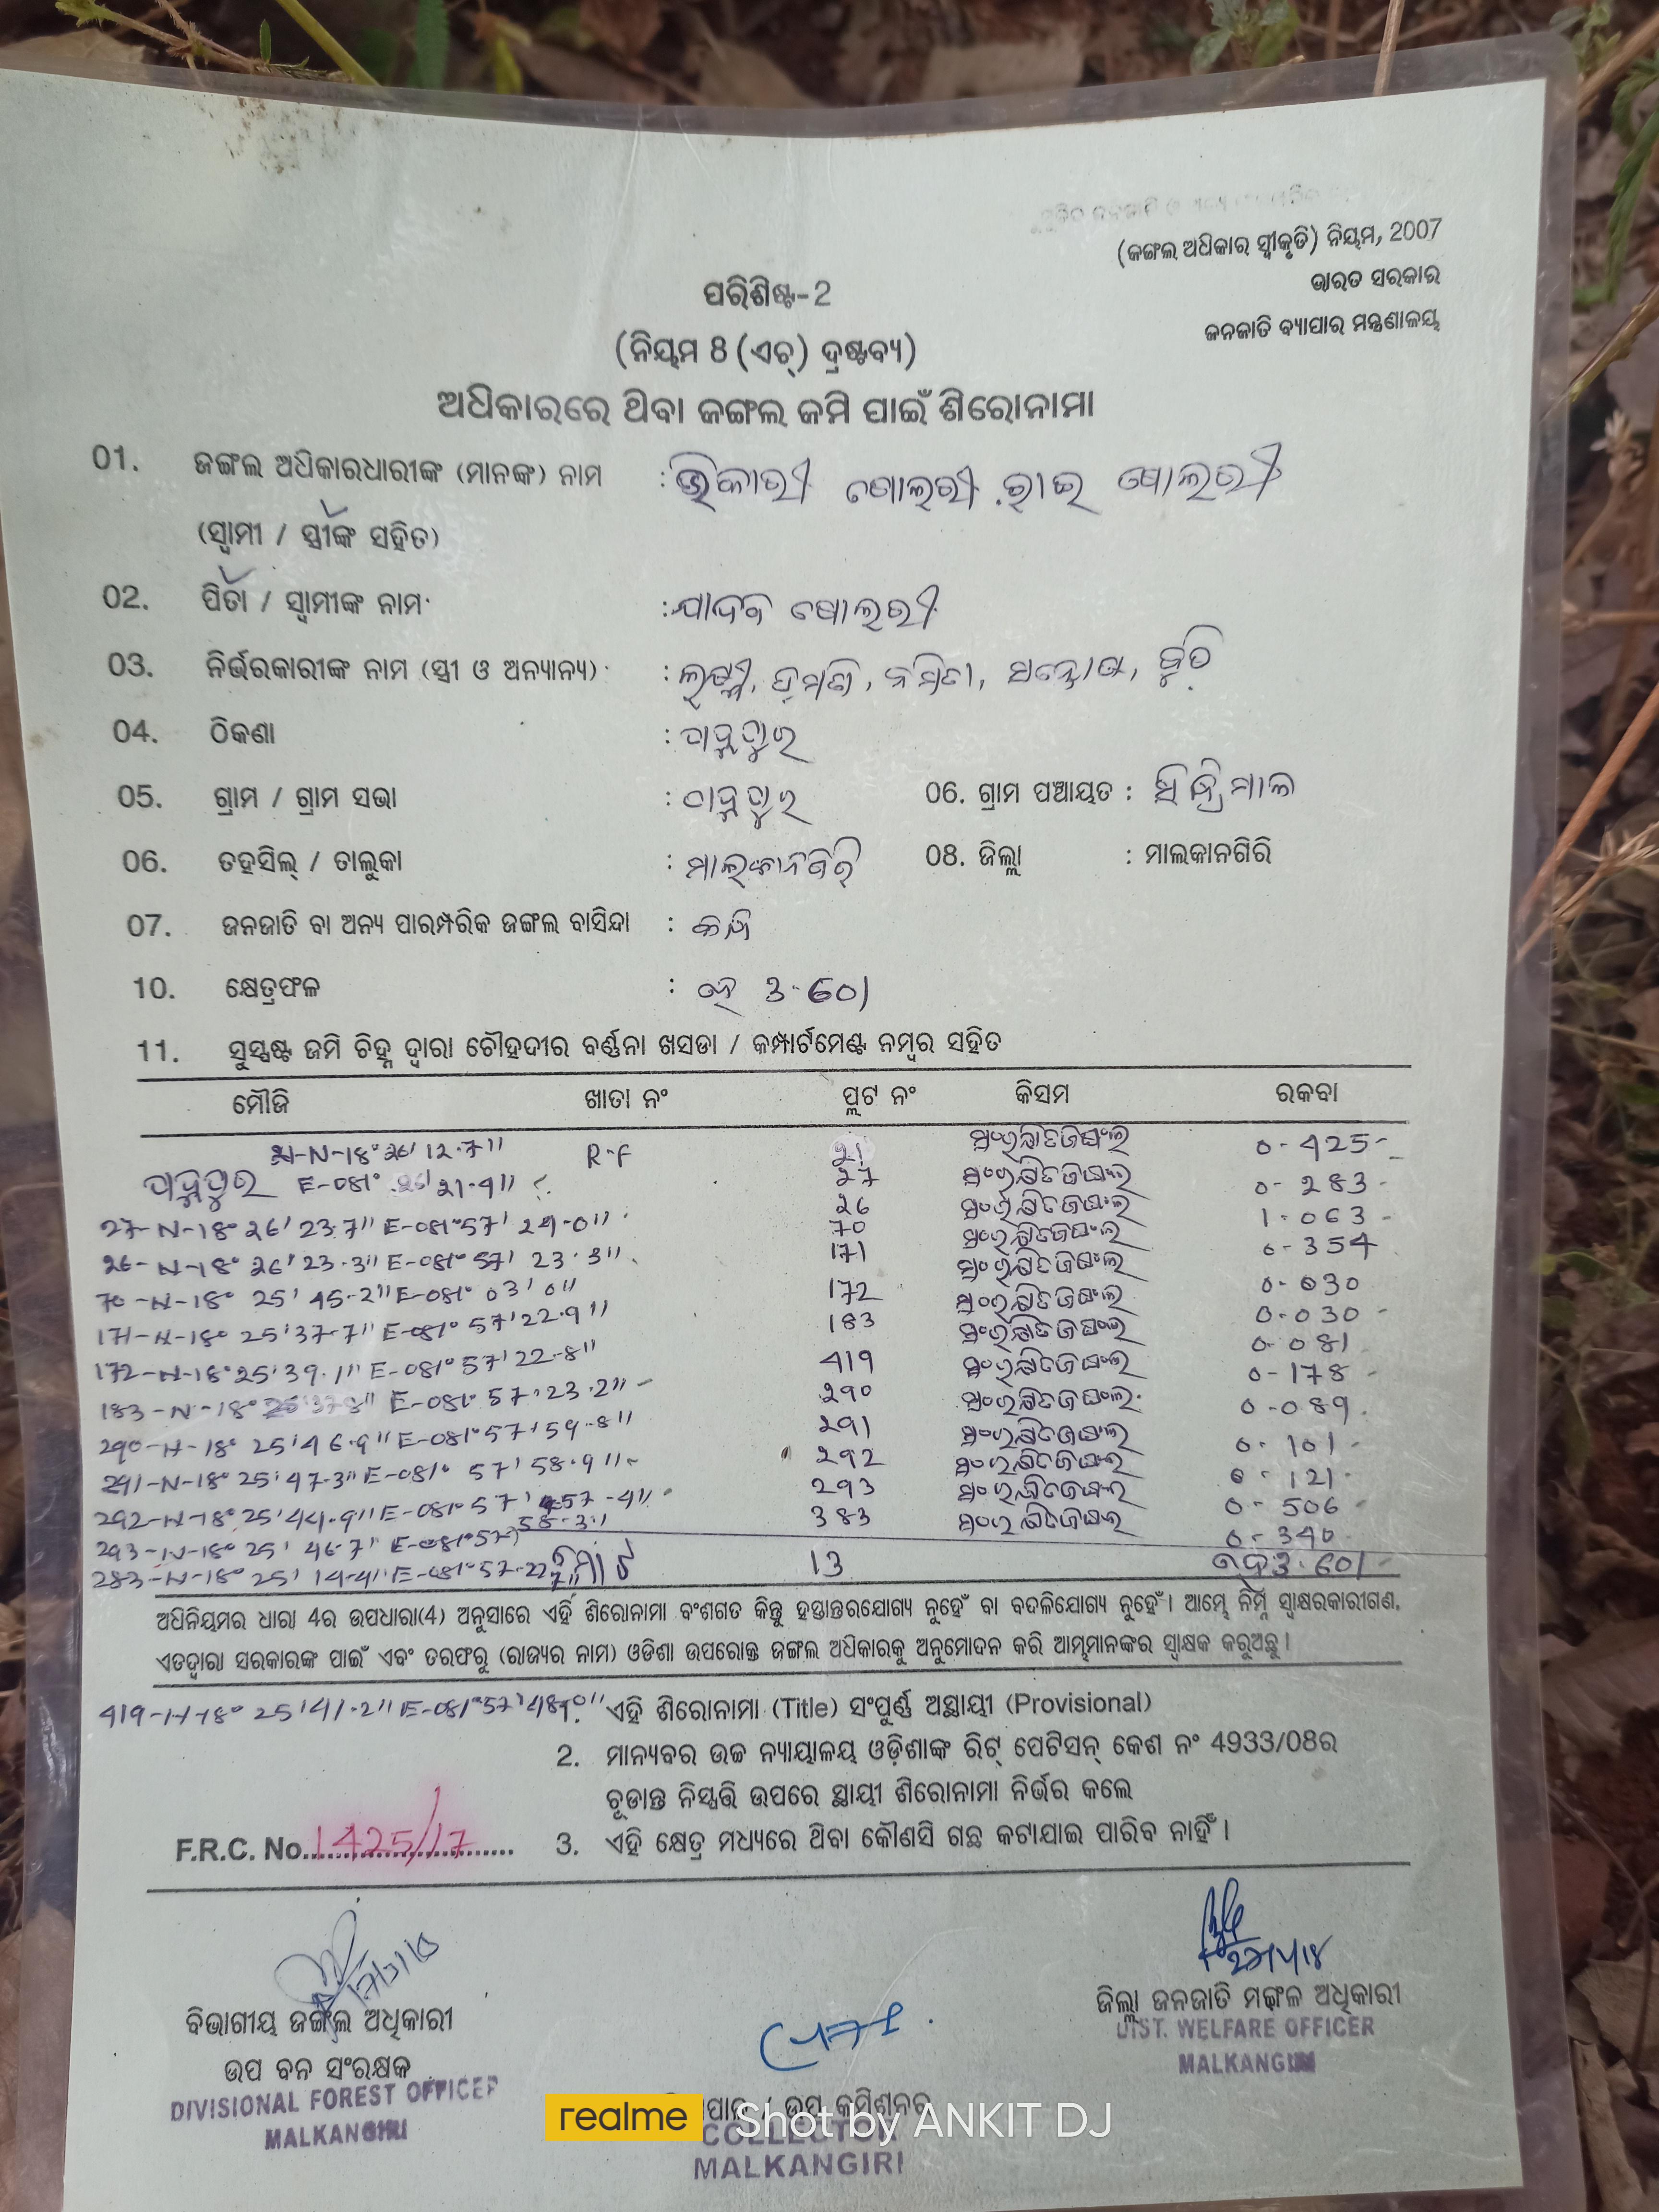 (ଜଙ୍ଗଲ ଅଧିକାର ସ୍ୱୀକୃତି) ନିୟମ, 2007
ଭାରତ ସରକାର
ଜନଜାତି ବ୍ୟାପାର ମନ୍ତ୍ରଣାଳୟ
ପରିଶିଷ୍ଟ-2
(ନିୟମ 8 (ଏଚ୍) ଦ୍ରଷ୍ଟବ୍ୟ)
ଅଧିକାରରେ ଥିବା ଜଙ୍ଗଲ ଜମି ପାଇଁ ଶିରୋନାମା
01. ଜଙ୍ଗଲ ଅଧିକାରଧାରୀଙ୍କ (ମାନଙ୍କ) ନାମ :
(ସ୍ୱାମୀ / ସ୍ତ୍ରୀଙ୍କ ସହିତ)
02. ପିତା / ସ୍ୱାମୀଙ୍କ ନାମ :
03. ନିର୍ଭରକାରୀଙ୍କ ନାମ (ସ୍ତ୍ରୀ ଓ ଅନ୍ୟାନ୍ୟ) :
04. ଠିକଣା :
05. ଗ୍ରାମ / ଗ୍ରାମ ସଭା : 06. ଗ୍ରାମ ପଞ୍ଚାୟତ :
06. ତହସିଲ୍ / ତାଲୁକା : ମାଲକାନଗିରି 08. ଜିଲ୍ଲା : ମାଲକାନଗିରି
07. ଜନଜାତି ବା ଅନ୍ୟ ପାରମ୍ପରିକ ଜଙ୍ଗଲ ବାସିନ୍ଦା :
10. କ୍ଷେତ୍ରଫଳ : ହେ 3.601
11. ସୁସ୍ପଷ୍ଟ ଜମି ଚିହ୍ନ ଦ୍ୱାରା ଚୌହଦୀର ବର୍ଣ୍ଣନା ଖସଡା / କମ୍ପାର୍ଟମେଣ୍ଟ ନମ୍ବର ସହିତ
ମୌଜି ଖାତା ନଂ ପ୍ଲଟ ନଂ କିସମ ରକବା
21-N-18° 26' 12.7" R-F 21 ସଂରକ୍ଷିତଜଙ୍ଗଲ 0-425
27 ସଂରକ୍ଷିତଜଙ୍ଗଲ 0-283
27-N-18° 26' 23.7" E-081°57' 24.0" 26 ସଂରକ୍ଷିତଜଙ୍ଗଲ 1-063
26-N-18° 26' 23.3" E-081° 57' 23.3" 70 ସଂରକ୍ଷିତଜଙ୍ଗଲ 0-354
70-N-18° 25' 45.2" E-081° 03' 0" 171 ସଂରକ୍ଷିତଜଙ୍ଗଲ 0-030
171-N-18° 25' 37.7" E-081° 57' 22.9" 172 ସଂରକ୍ଷିତଜଙ୍ଗଲ 0-030
172-N-18° 25' 39.1" E-081° 57' 22.8" 183 ସଂରକ୍ଷିତଜଙ୍ଗଲ 0-081
183-N-18° E-081° 57' 23.2" 419 ସଂରକ୍ଷିତଜଙ୍ଗଲ 0-178
290-N-18° 25' 46.9" E-081° 57' 59.8" 290 ସଂରକ୍ଷିତଜଙ୍ଗଲ 0-089
291-N-18° 25' 47.3" E-081° 57' 58.9" 291 ସଂରକ୍ଷିତଜଙ୍ଗଲ 0-101
292-N-18° 25' 44.9" E-081° 57' 57.4" 292 ସଂରକ୍ଷିତଜଙ୍ଗଲ 0-121
293-N-18° 25' 46.7" E-081° 57' 58.3" 293 ସଂରକ୍ଷିତଜଙ୍ଗଲ 0-506
283-N-18° 25' 14.4" E-081° 57-22.7" 383 ସଂରକ୍ଷିତଜଙ୍ଗଲ 0-340
ମୋଟ 13 ହେ 3.601
ଅଧିନିୟମର ଧାରା 4ର ଉପଧାରା(4) ଅନୁସାରେ ଏହି ଶିରୋନାମା ବଂଶଗତ କିନ୍ତୁ ହସ୍ତାନ୍ତରଯୋଗ୍ୟ ନୁହେଁ ବା ବଦଳିଯୋଗ୍ୟ ନୁହେଁ। ଆମ୍ଭେ ନିମ୍ନ ସ୍ୱାକ୍ଷରକାରୀଗଣ,
ଏତଦ୍ୱାରା ସରକାରଙ୍କ ପାଇଁ ଏବଂ ତରଫରୁ (ରାଜ୍ୟର ନାମ) ଓଡିଶା ଉପରୋକ୍ତ ଜଙ୍ଗଲ ଅଧିକାରକୁ ଅନୁମୋଦନ କରି ଆମ୍ଭମାନଙ୍କର ସ୍ୱାକ୍ଷକ କରୁଅଛୁ।
419-N-18° 25' 41.2" E-081°57'
1. ଏହି ଶିରୋନାମା (Title) ସଂପୂର୍ଣ୍ଣ ଅସ୍ଥାୟୀ (Provisional)
2. ମାନ୍ୟବର ଉଚ୍ଚ ନ୍ୟାୟାଳୟ ଓଡ଼ିଶାଙ୍କ ରିଟ୍ ପେଟିସନ୍ କେଶ ନଂ 4933/08ର
ଚୂଡାନ୍ତ ନିସ୍ପତ୍ତି ଉପରେ ସ୍ଥାୟୀ ଶିରୋନାମା ନିର୍ଭର କଲେ
F.R.C. No. 1425/17
3. ଏହି କ୍ଷେତ୍ର ମଧ୍ୟରେ ଥିବା କୌଣସି ଗଛ କଟାଯାଇ ପାରିବ ନାହିଁ।
ବିଭାଗୀୟ ଜଙ୍ଗଲ ଅଧିକାରୀ
ଉପ ବନ ସଂରକ୍ଷକ
DIVISIONAL FOREST OFFICER
MALKANGIRI
ଜିଲ୍ଲା ଜନଜାତି ମଙ୍ଗଳ ଅଧିକାରୀ
DIST. WELFARE OFFICER
MALKANGIRI
/ ଉପ କମିଶନର
COLLECTOR
MALKANGIRI
realme Shot by ANKIT DJ